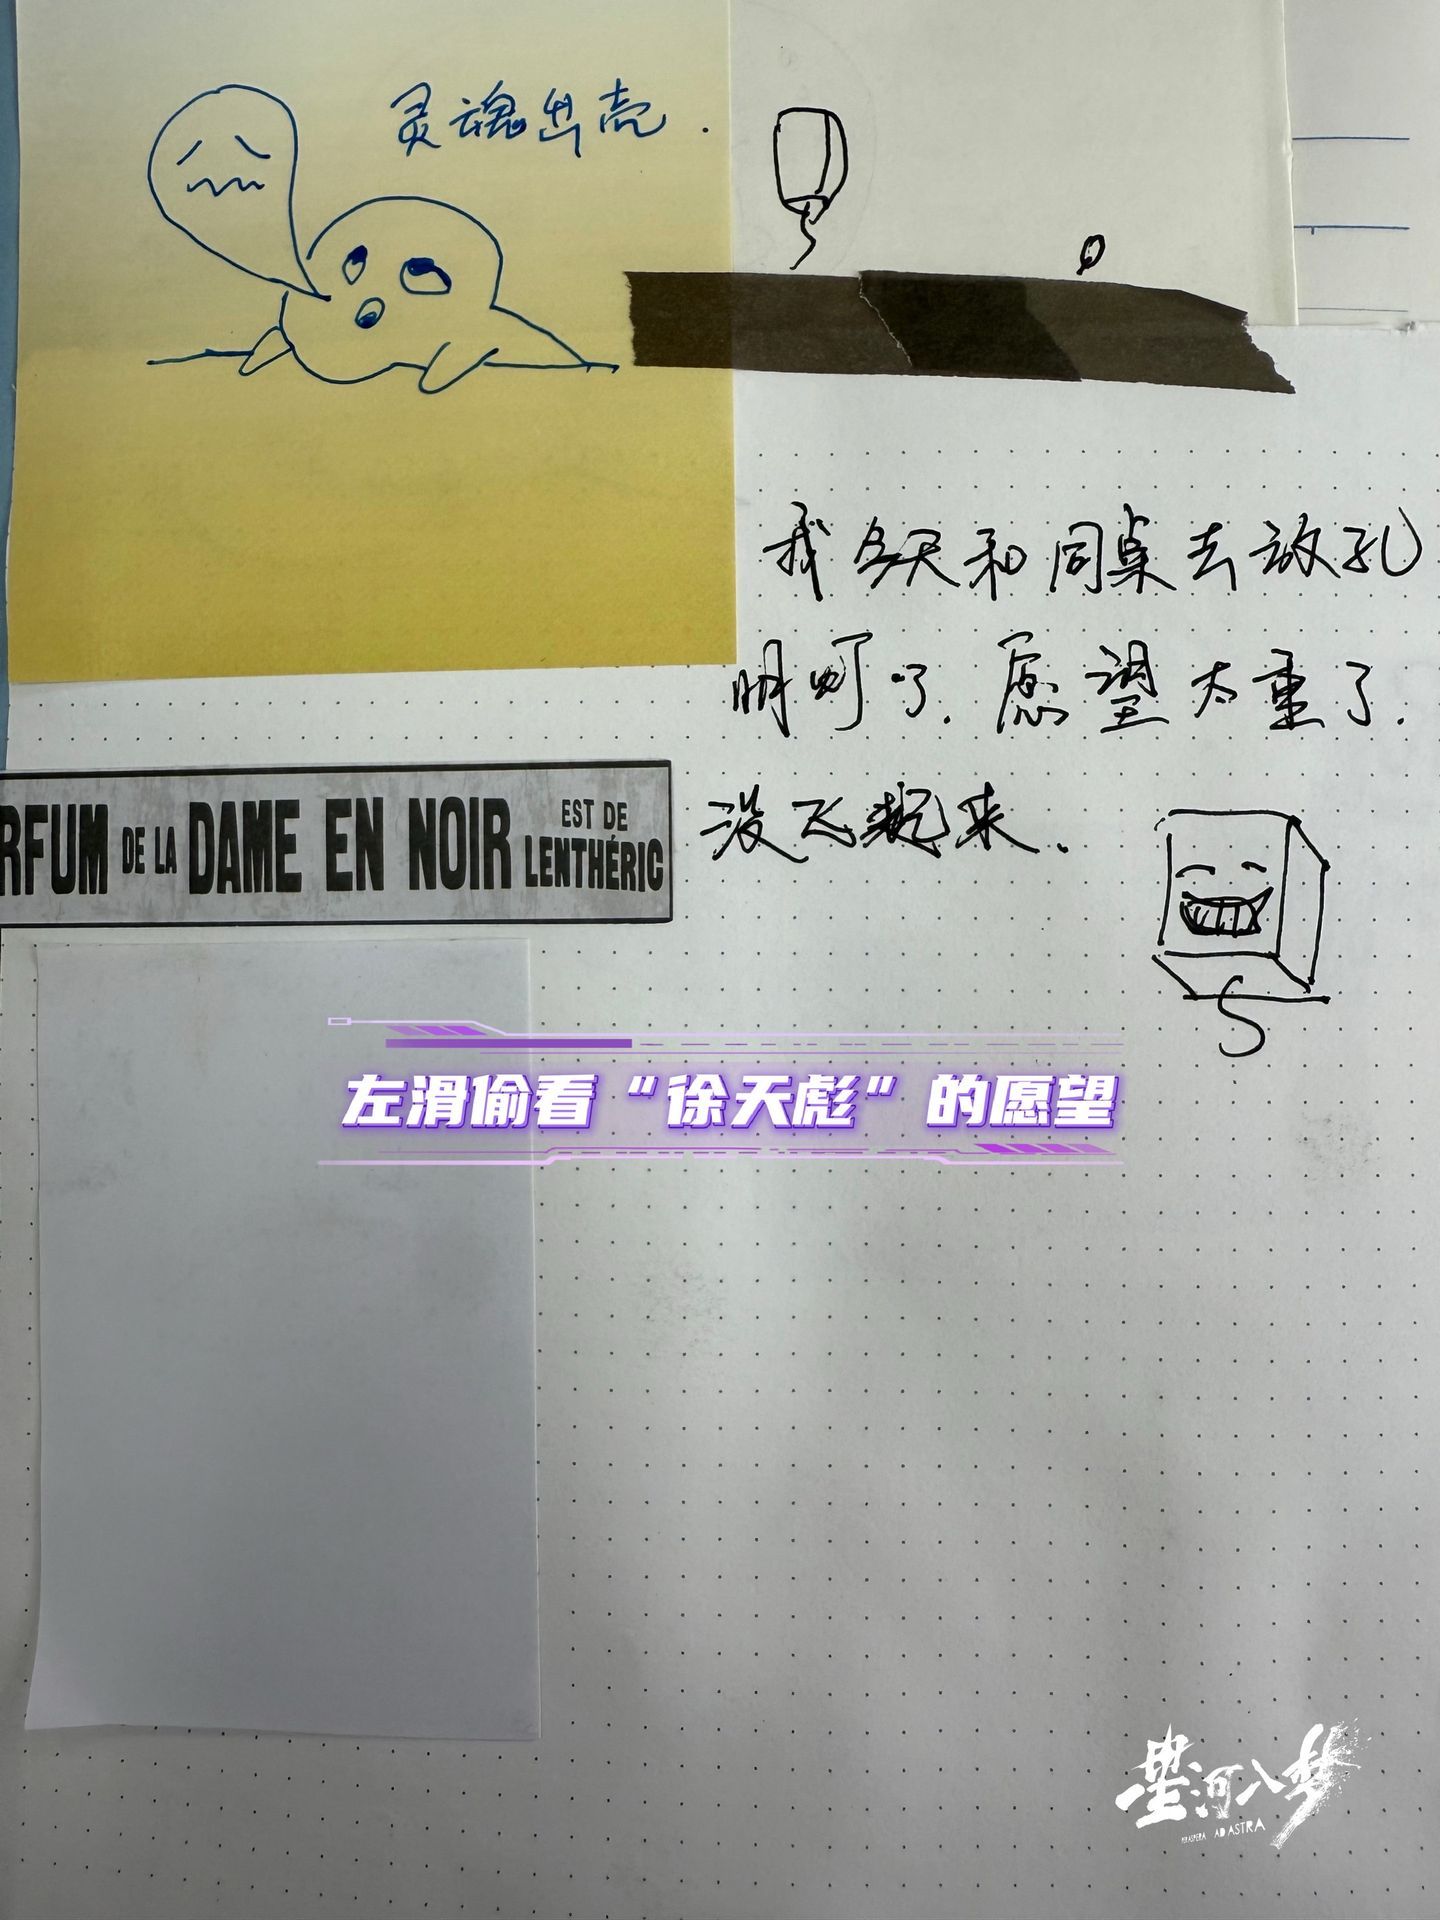 灵魂出壳.
我今天和同桌去放孔
明灯了.愿望太重了.
没飞起来.
RFUM DE LA DAME EN NOIR EST DE
LENTHÉRIC
左滑偷看“徐天彪”的愿望
星河入梦
PER ASPERA AD ASTRA